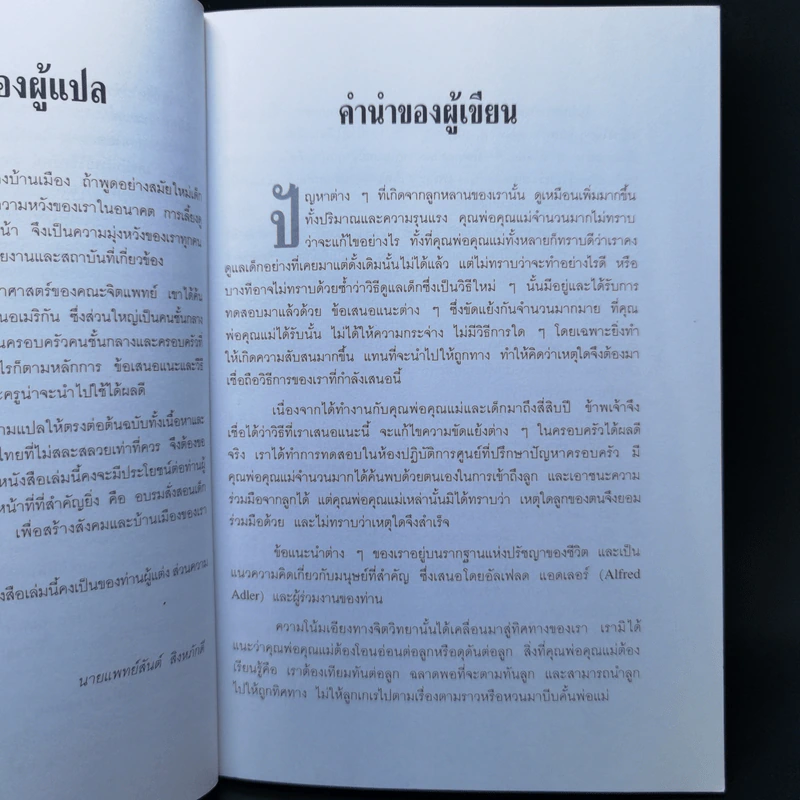 องผู้แปล
งบ้านเมือง ถ้าพูดอย่างสมัยใหม่เด็ก
ความหวังของเราในอนาคต การเลี้ยงดู
หน้า จึงเป็นความมุ่งหวังของเราทุกคน
ยงานและสถาบันที่เกี่ยวข้อง
าศาสตร์ของคณะจิตแพทย์ เขาได้ค้น
นอเมริกัน ซึ่งส่วนใหญ่เป็นคนชั้นกลาง
นครอบครัวคนชั้นกลางและครอบครัวที่
ไรก็ตามหลักการ ข้อเสนอแนะและวิธี
ะครูน่าจะนำไปใช้ได้ผลดี
ามแปลให้ตรงต่อต้นฉบับทั้งเนื้อหาและ
ไทยที่ไม่สละสลวยเท่าที่ควร จึงต้องขอ
หนังสือเล่มนี้คงจะมีประโยชน์ต่อท่านผู้
หน้าที่ที่สำคัญยิ่ง คือ อบรมสั่งสอนเด็ก
เพื่อสร้างสังคมและบ้านเมืองของเรา
งสือเล่มนี้คงเป็นของท่านผู้แต่ง ส่วนความ
นายแพทย์สันต์ สิงหภักดี
คำนำของผู้เขียน
ปัญหาต่าง ๆ ที่เกิดจากลูกหลานของเรานั้น ดูเหมือนเพิ่มมากขึ้น
ทั้งปริมาณและความรุนแรง คุณพ่อคุณแม่จำนวนมากไม่ทราบ
ว่าจะแก้ไขอย่างไร ทั้งที่คุณพ่อคุณแม่ทั้งหลายก็ทราบดีว่าเราคง
ดูแลเด็กอย่างที่เคยมาแต่ดั้งเดิมนั้นไม่ได้แล้ว แต่ไม่ทราบว่าจะทำอย่างไรดี หรือ
บางทีอาจไม่ทราบด้วยซ้ำว่าวิธีดูแลเด็กซึ่งเป็นวิธีใหม่ ๆ นั้นมีอยู่และได้รับการ
ทดสอบมาแล้วด้วย ข้อเสนอแนะต่าง ๆ ซึ่งขัดแย้งกันจำนวนมากมาย ที่คุณ
พ่อคุณแม่ได้รับนั้น ไม่ได้ให้ความกระจ่าง ไม่มีวิธีการใด ๆ โดยเฉพาะยิ่งทำ
ให้เกิดความสับสนมากขึ้น แทนที่จะนำไปให้ถูกทาง ทำให้คิดว่าเหตุใดจึงต้องมา
เชื่อถือวิธีการของเราที่กำลังเสนอนี้
เนื่องจากได้ทำงานกับคุณพ่อคุณแม่และเด็กมาถึงสี่สิบปี ข้าพเจ้าจึง
เชื่อได้ว่าวิธีที่เราเสนอแนะนี้ จะแก้ไขความขัดแย้งต่าง ๆ ในครอบครัวได้ผลดี
จริง เราได้ทำการทดสอบในห้องปฏิบัติการศูนย์ที่ปรึกษาปัญหาครอบครัว มี
คุณพ่อคุณแม่จำนวนมากได้ค้นพบด้วยตนเองในการเข้าถึงลูก และเอาชนะความ
ร่วมมือจากลูกได้ แต่คุณพ่อคุณแม่เหล่านั้นมิได้ทราบว่า เหตุใดลูกของตนจึงยอม
ร่วมมือด้วย และไม่ทราบว่าเหตุใดจึงสำเร็จ
ข้อแนะนำต่าง ๆ ของเราอยู่บนรากฐานแห่งปรัชญาของชีวิต และเป็น
แนวความคิดเกี่ยวกับมนุษย์ที่สำคัญ ซึ่งเสนอโดยอัลเฟลด แอดเลอร์ (Alfred
Adler) และผู้ร่วมงานของท่าน
ความโน้มเอียงทางจิตวิทยานั้นได้เคลื่อนมาสู่ทิศทางของเรา เรามิได้
แนะว่าคุณพ่อคุณแม่ต้องโอนอ่อนต่อลูกหรือดุดันต่อลูก สิ่งที่คุณพ่อคุณแม่ต้อง
เรียนรู้คือ เราต้องเทียมทันต่อลูก ฉลาดพอที่จะตามทันลูก และสามารถนำลูก
ไปให้ถูกทิศทาง ไม่ให้ลูกเกเรไปตามเรื่องตามราวหรือหวนมาบีบคั้นพ่อแม่